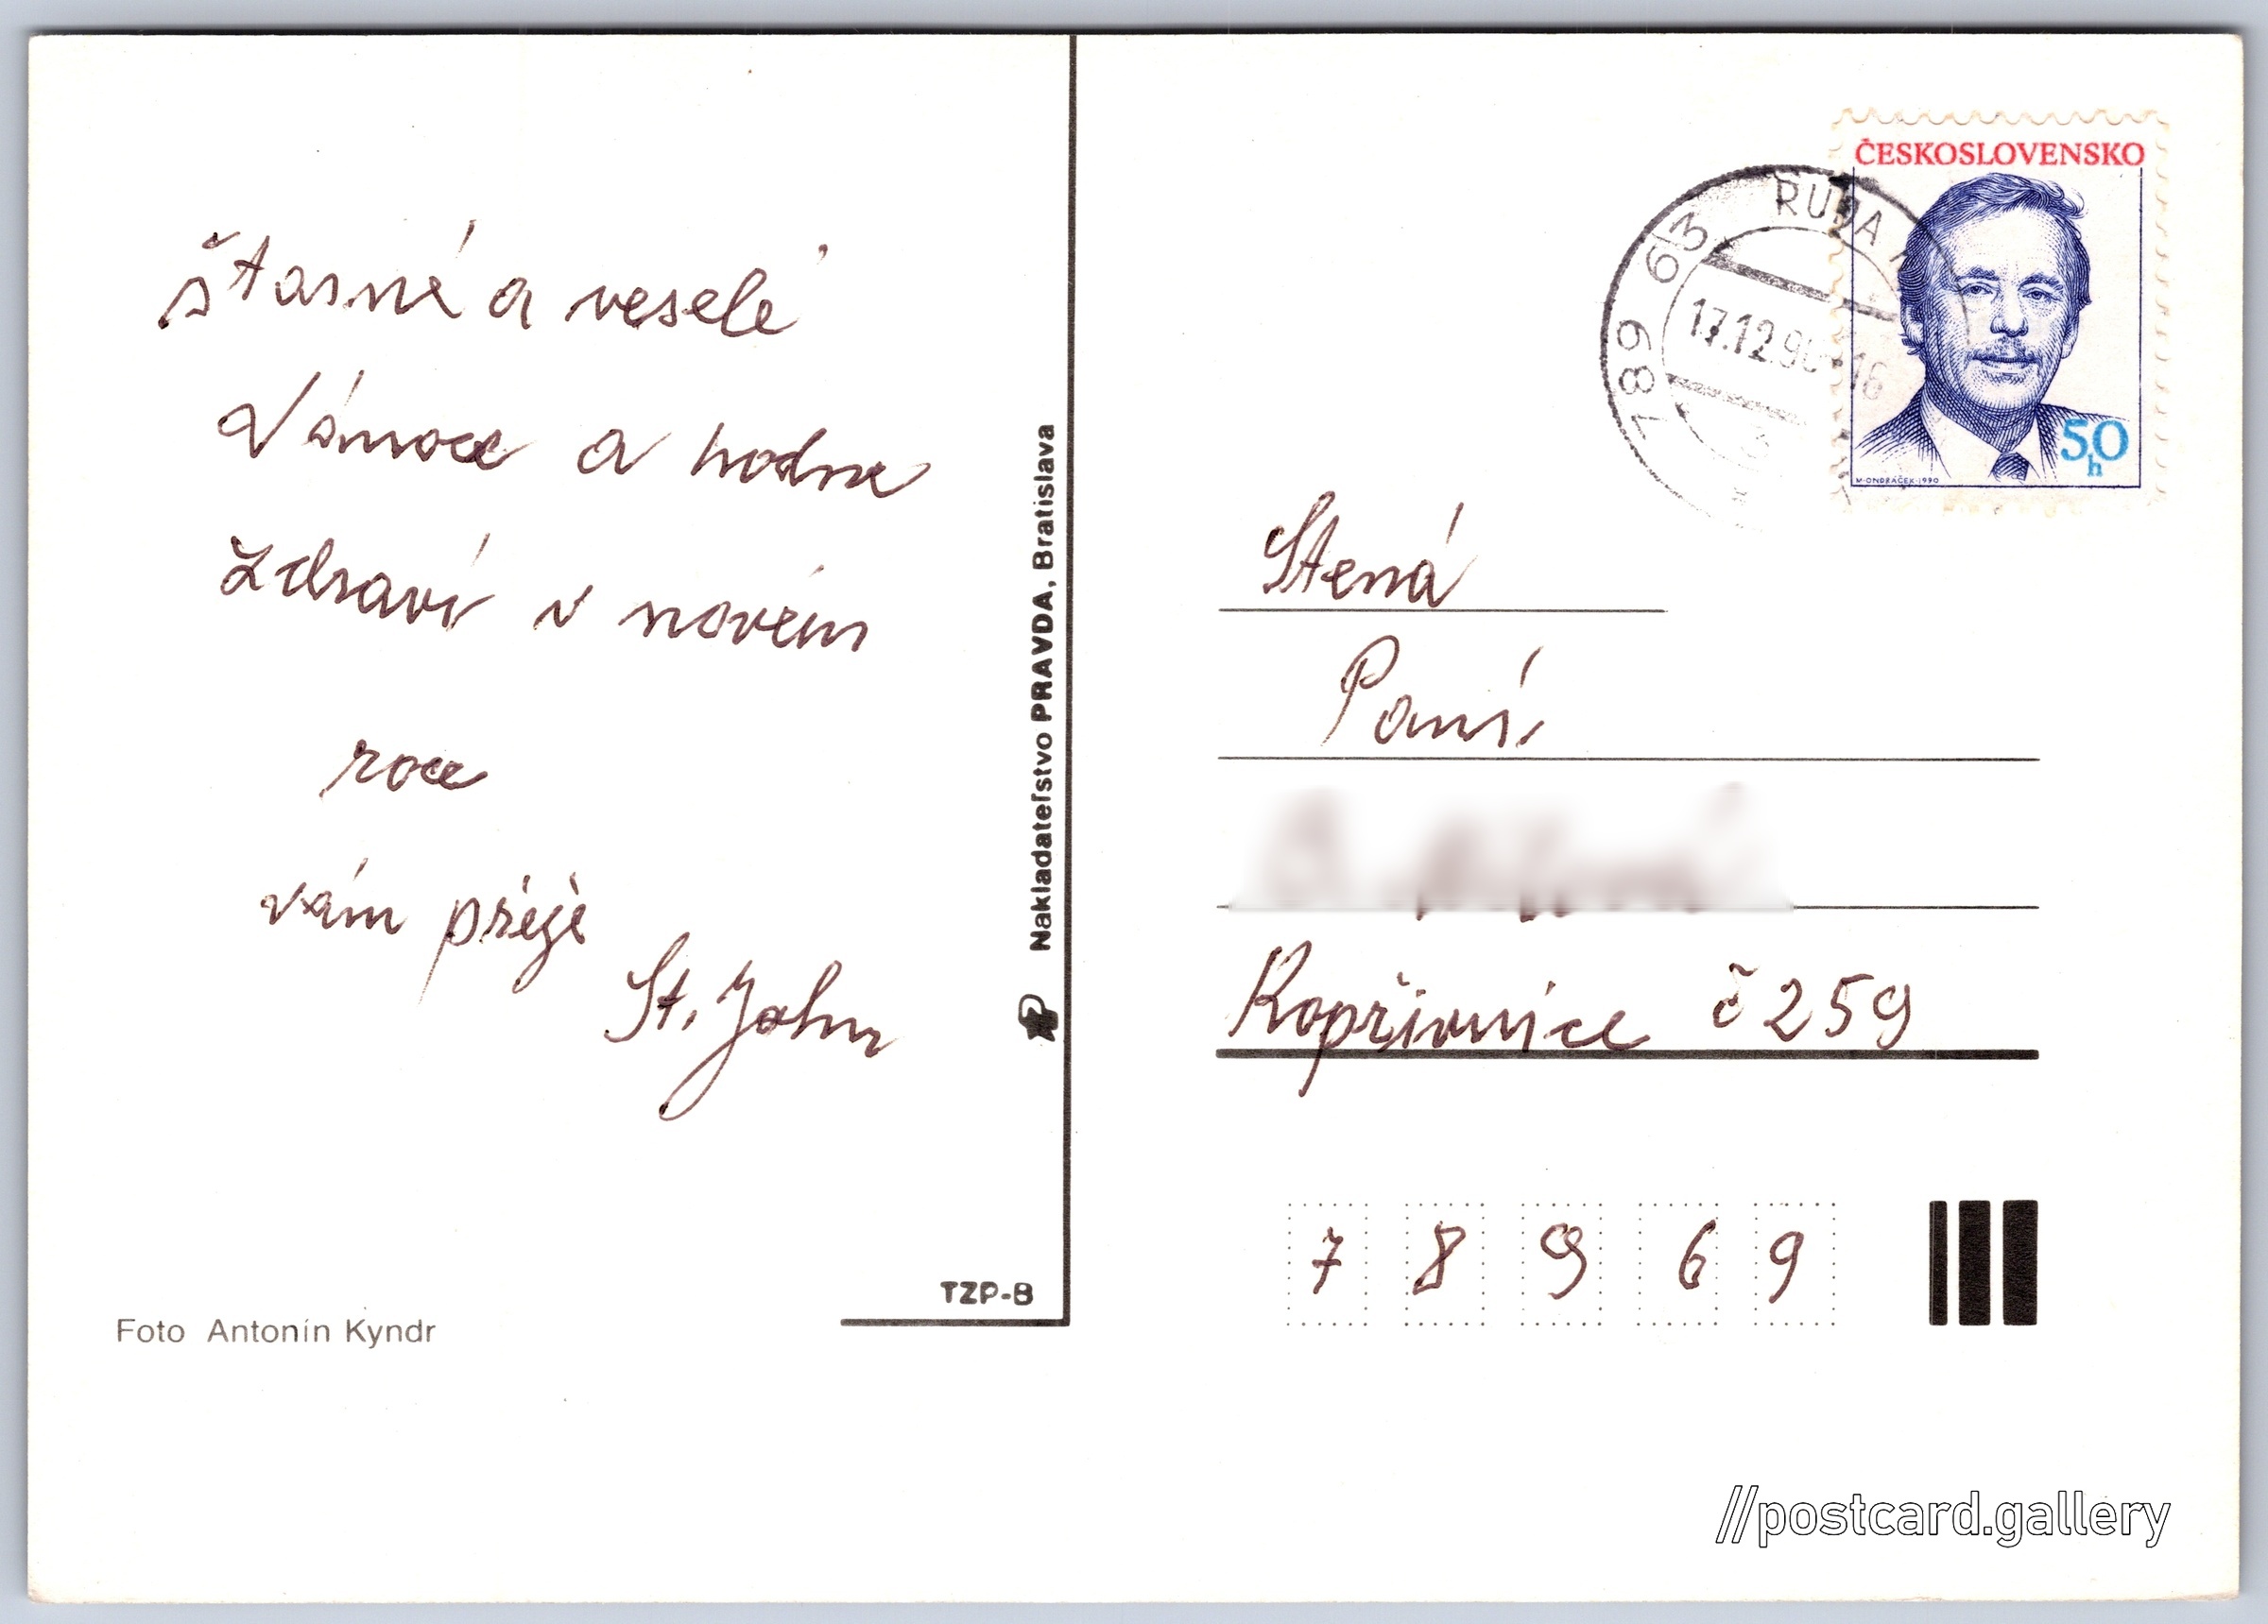 štasné a veselé
Vánoce a hodne
zdraví v novém
roce
vám přeje
St. Jahn
Foto Antonín Kyndr
TZP-B
Nakladateľstvo PRAVDA, Bratislava
ČESKOSLOVENSKO
50
h
M·ONDRÁČEK·1990
789 63 RUDA
17.12.90-16
Ctená
Paní
Kopřivnice č 259
7 8 9 6 9
//postcard.gallery